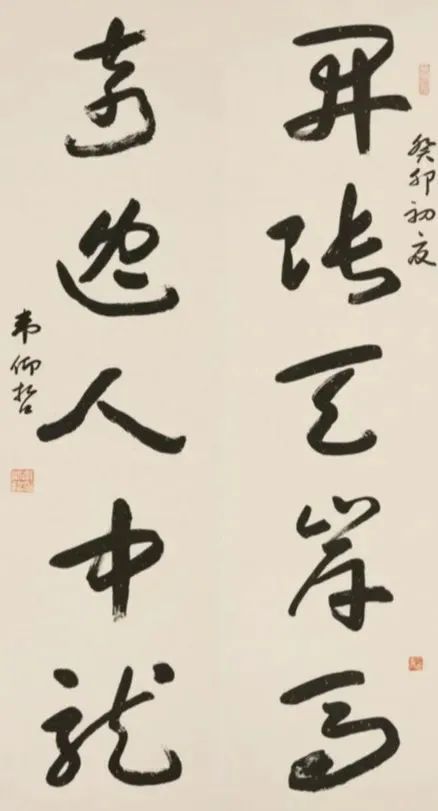 開張天岸馬
癸卯初夏
奇逸人中龍
韦仰哲